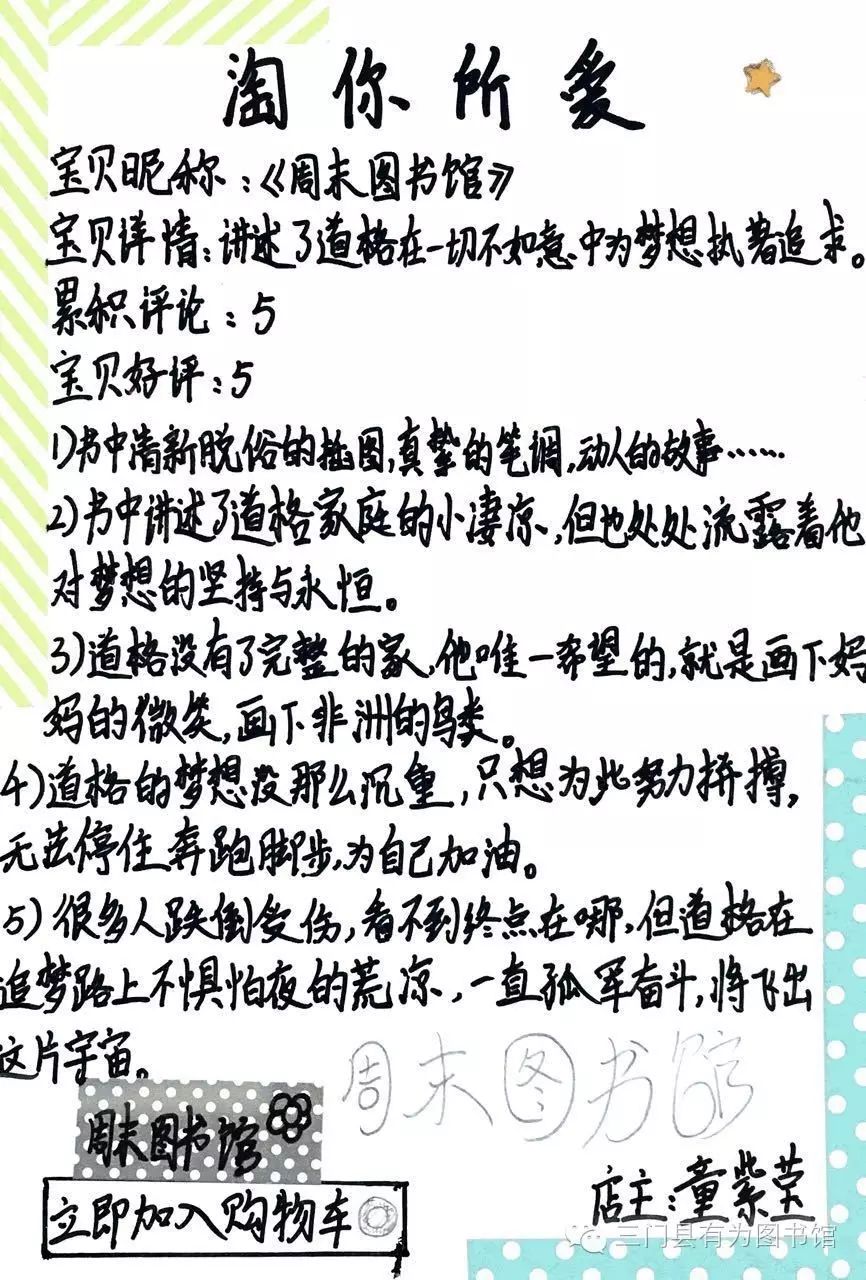 淘你所爱
宝贝昵称：《周末图书馆》
宝贝详情：讲述了道格在一切不如意中为梦想执着追求。
累积评论：5
宝贝好评：5
1)书中清新脱俗的插图,真挚的笔调,动人的故事……
2)书中讲述了道格家庭的小凄凉,但也处处流露着他
对梦想的坚持与永恒。
3)道格没有了完整的家,他唯一希望的,就是画下妈
妈的微笑,画下非洲的鸟类。
4)道格的梦想没那么沉重,只想为此努力拼搏,
无法停住奔跑脚步,为自己加油。
5)很多人跌倒受伤,看不到终点在哪,但道格在
追梦路上不惧怕夜的荒凉,一直孤军奋斗,将飞出
这片宇宙。
周末图书馆
周末图书馆
立即加入购物车
店主:童紫莹
三门县有为图书馆